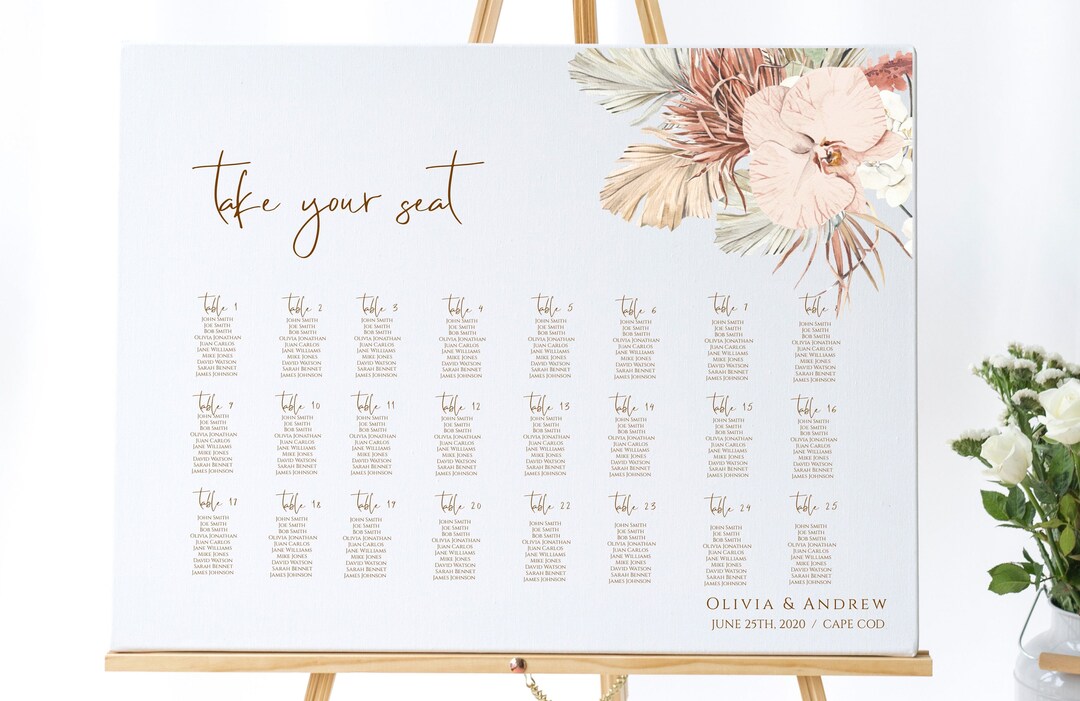 take your seat
table 1
John Smith
Joe Smith
Bob Smith
Olivia Jonathan
Juan Carlos
Jane Williams
Mike Jones
David Watson
Sarah Bennet
James Johnson
table 2
John Smith
Joe Smith
Bob Smith
Olivia Jonathan
Juan Carlos
Jane Williams
Mike Jones
David Watson
Sarah Bennet
James Johnson
table 3
John Smith
Joe Smith
Bob Smith
Olivia Jonathan
Juan Carlos
Jane Williams
Mike Jones
David Watson
Sarah Bennet
James Johnson
table 4
John Smith
Joe Smith
Bob Smith
Olivia Jonathan
Juan Carlos
Jane Williams
Mike Jones
David Watson
Sarah Bennet
James Johnson
table 5
John Smith
Joe Smith
Bob Smith
Olivia Jonathan
Juan Carlos
Jane Williams
Mike Jones
David Watson
Sarah Bennet
James Johnson
table 6
John Smith
Joe Smith
Bob Smith
Olivia Jonathan
Juan Carlos
Jane Williams
Mike Jones
David Watson
Sarah Bennet
James Johnson
table 7
John Smith
Joe Smith
Bob Smith
Olivia Jonathan
Juan Carlos
Jane Williams
Mike Jones
David Watson
Sarah Bennet
James Johnson
table
John Smith
Joe Smith
Bob Smith
Olivia Jonathan
Juan Carlos
Jane Williams
Mike Jones
David Watson
Sarah Bennet
James Johnson
table 9
John Smith
Joe Smith
Bob Smith
Olivia Jonathan
Juan Carlos
Jane Williams
Mike Jones
David Watson
Sarah Bennet
James Johnson
table 10
John Smith
Joe Smith
Bob Smith
Olivia Jonathan
Juan Carlos
Jane Williams
Mike Jones
David Watson
Sarah Bennet
James Johnson
table 11
John Smith
Joe Smith
Bob Smith
Olivia Jonathan
Juan Carlos
Jane Williams
Mike Jones
David Watson
Sarah Bennet
James Johnson
table 12
John Smith
Joe Smith
Bob Smith
Olivia Jonathan
Juan Carlos
Jane Williams
Mike Jones
David Watson
Sarah Bennet
James Johnson
table 13
John Smith
Joe Smith
Bob Smith
Olivia Jonathan
Juan Carlos
Jane Williams
Mike Jones
David Watson
Sarah Bennet
James Johnson
table 14
John Smith
Joe Smith
Bob Smith
Olivia Jonathan
Juan Carlos
Jane Williams
Mike Jones
David Watson
Sarah Bennet
James Johnson
table 15
John Smith
Joe Smith
Bob Smith
Olivia Jonathan
Juan Carlos
Jane Williams
Mike Jones
David Watson
Sarah Bennet
James Johnson
table 16
John Smith
Joe Smith
Bob Smith
Olivia Jonathan
Juan Carlos
Jane Williams
Mike Jones
David Watson
Sarah Bennet
James Johnson
table 17
John Smith
Joe Smith
Bob Smith
Olivia Jonathan
Juan Carlos
Jane Williams
Mike Jones
David Watson
Sarah Bennet
James Johnson
table 18
John Smith
Joe Smith
Bob Smith
Olivia Jonathan
Juan Carlos
Jane Williams
Mike Jones
David Watson
Sarah Bennet
James Johnson
table 19
John Smith
Joe Smith
Bob Smith
Olivia Jonathan
Juan Carlos
Jane Williams
Mike Jones
David Watson
Sarah Bennet
James Johnson
table 20
John Smith
Joe Smith
Bob Smith
Olivia Jonathan
Juan Carlos
Jane Williams
Mike Jones
David Watson
Sarah Bennet
James Johnson
table 22
John Smith
Joe Smith
Bob Smith
Olivia Jonathan
Juan Carlos
Jane Williams
Mike Jones
David Watson
Sarah Bennet
James Johnson
table 23
John Smith
Joe Smith
Bob Smith
Olivia Jonathan
Juan Carlos
Jane Williams
Mike Jones
David Watson
Sarah Bennet
James Johnson
table 24
John Smith
Joe Smith
Bob Smith
Olivia Jonathan
Juan Carlos
Jane Williams
Mike Jones
David Watson
Sarah Bennet
James Johnson
table 25
John Smith
Joe Smith
Bob Smith
Olivia Jonathan
Juan Carlos
Jane Williams
Mike Jones
David Watson
Sarah Bennet
James Johnson
Olivia & Andrew
JUNE 25TH, 2020 / CAPE COD